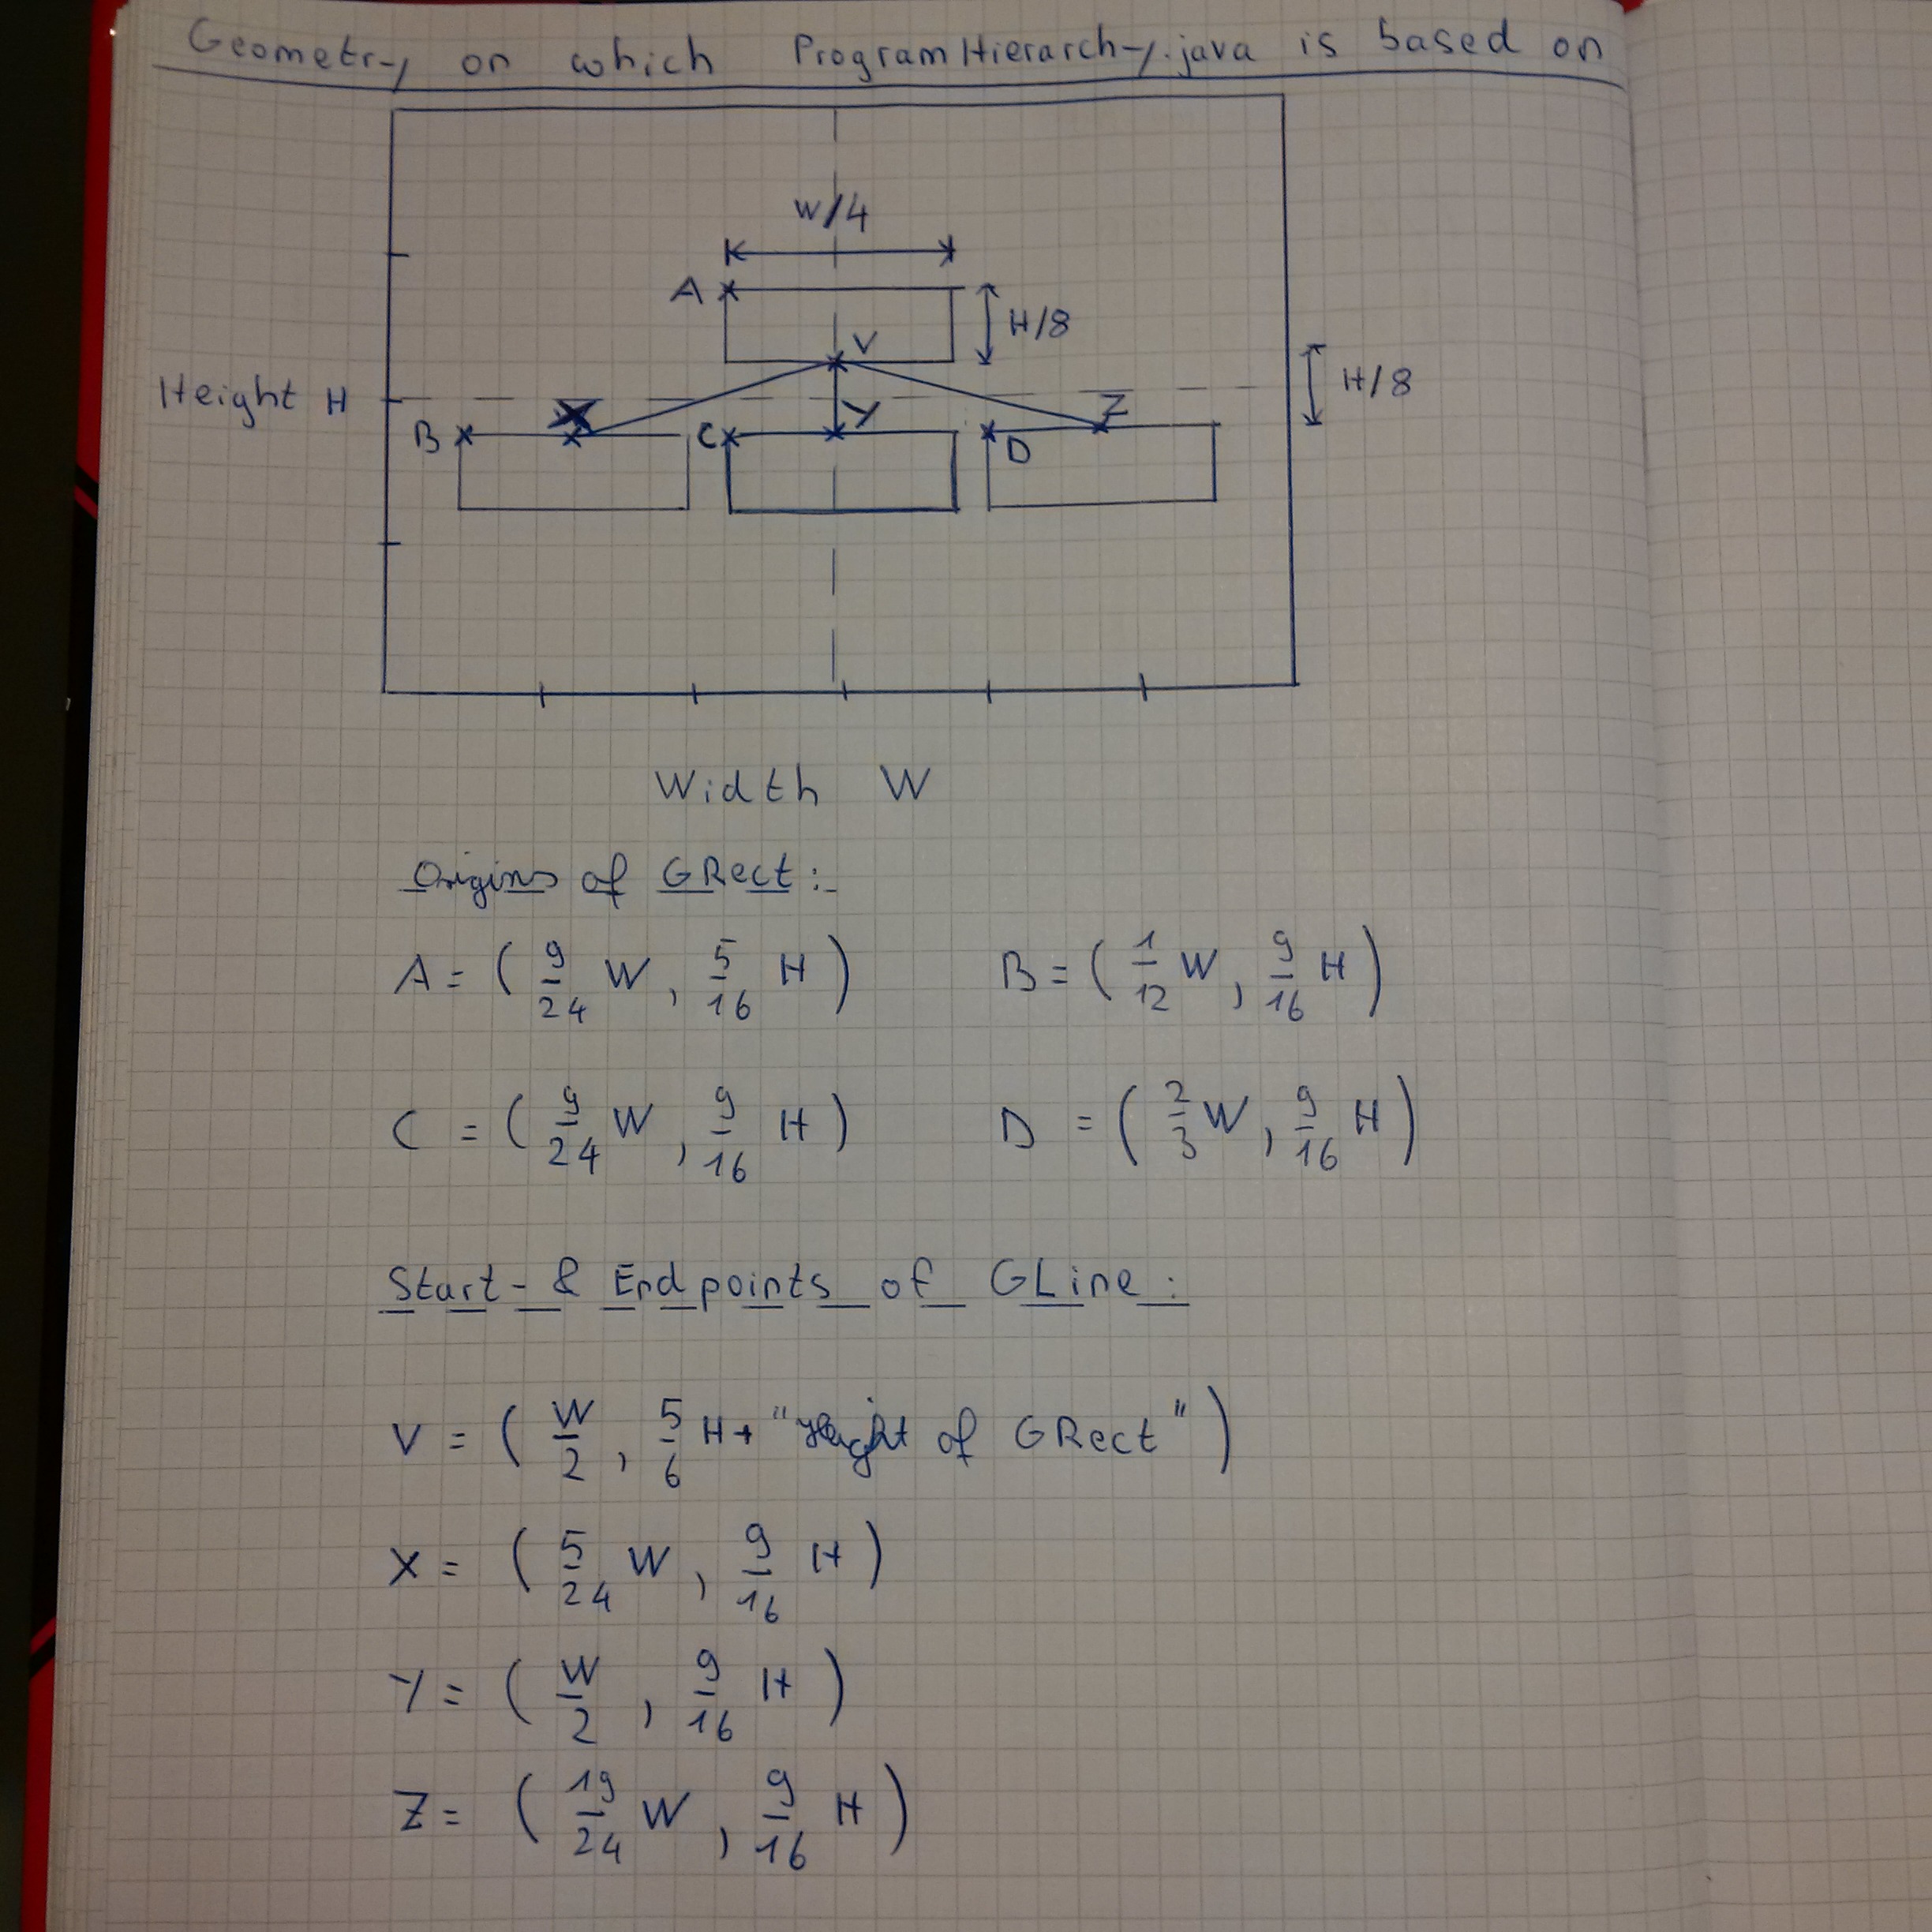 Geometry on which ProgramHierarchy.java is based on
W/4
A
H/8
V
Height H
H/8
X
Y
Z
B
C
D
Width W
Origins of GRect:
A = ( 9/24 W, 5/16 H ) B = ( 1/12 W, 9/16 H )
C = ( 9/24 W, 9/16 H ) D = ( 2/3 W, 9/16 H )
Start- & Endpoints of GLine:
V = ( W/2, 5/6 H + "Height of GRect" )
X = ( 5/24 W, 9/16 H )
Y = ( W/2, 9/16 H )
Z = ( 19/24 W, 9/16 H )